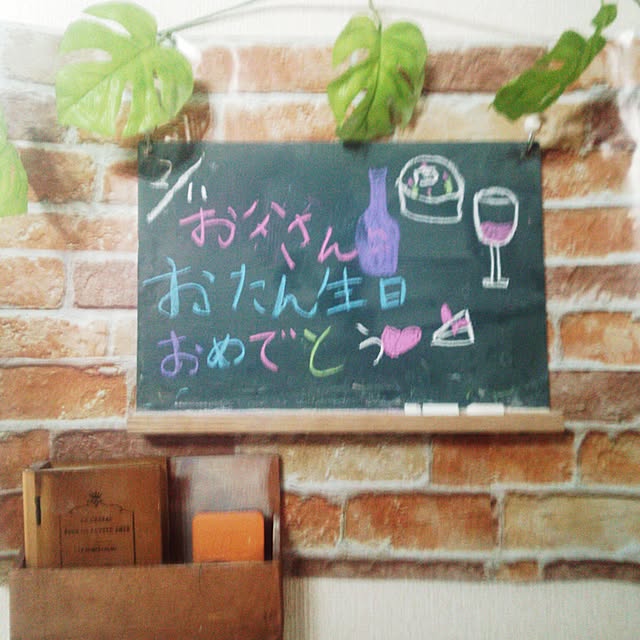 2/11
お父さん
おたん生日
おめでとう